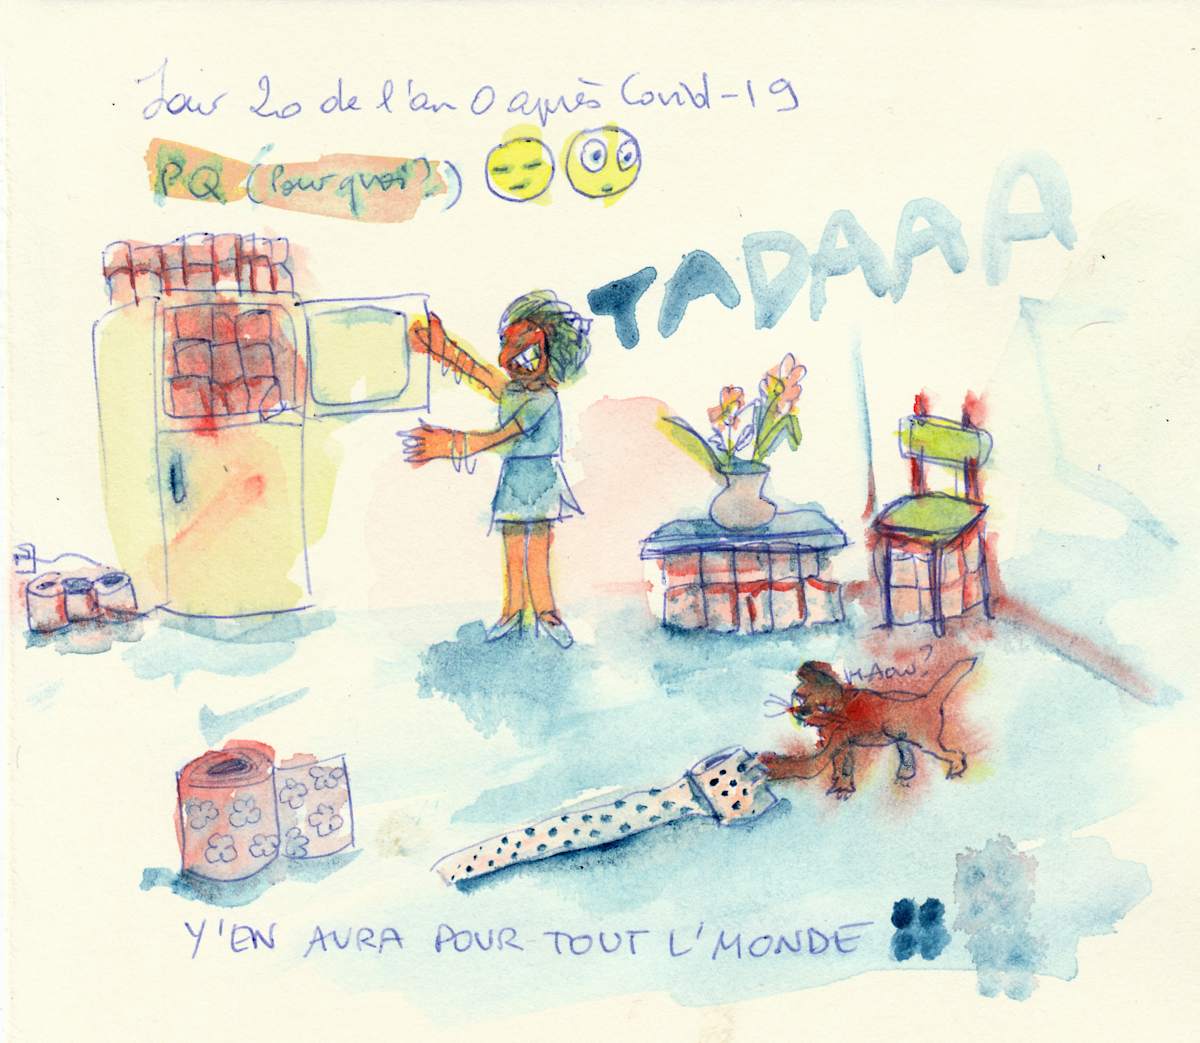 Jour 20 de l'an 0 après Covid-19
PQ (Pourquoi?)
TADAAA
MAow?
Y'EN AURA POUR TOUT L'MONDE